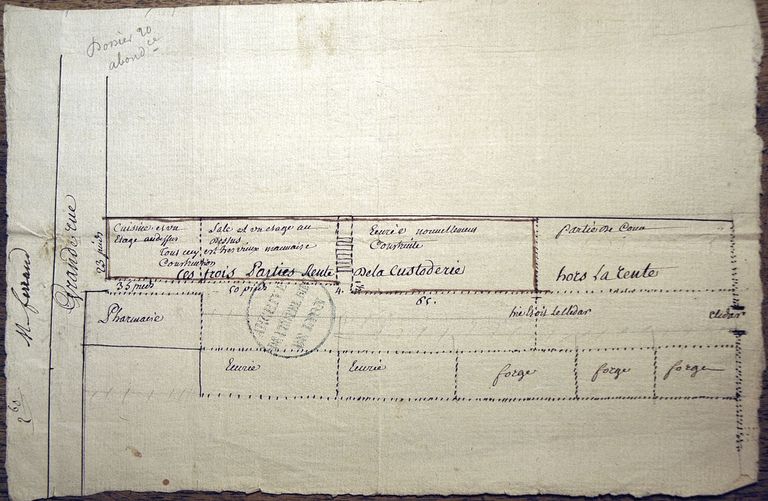 Dossier 20
abond ce
Grande rue
23 pieds
Cuisine et un
Etage audessus
Sale et un etage au
Dessus
tous ceci est horvieux mauvaise
Construction
Ecurie nouvellement
Construite
partie de Cour
Ces trois Parties Rente
De la Custoderie
hors la Rente
35 pieds
50 pieds
4.
65.
Pharmacie
cledar
Ecurie
Ecurie
forge
forge
forge
ARCHIVES